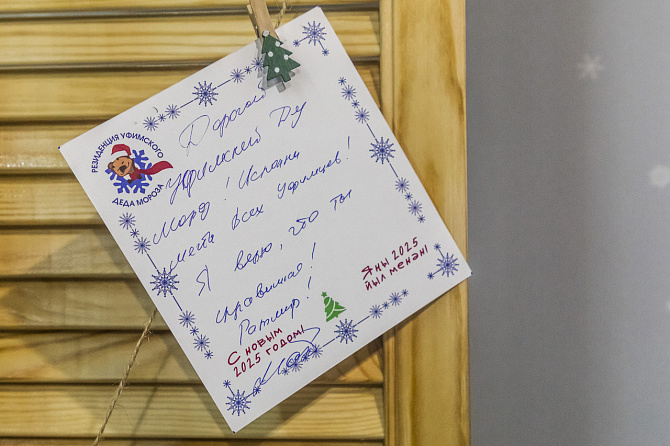 РЕЗИДЕНЦИЯ УФИМСКОГО
ДЕДА МОРОЗА
Дорогой
Уфимский Де
Мороз! Исполни
мечты всех Уфимцев!
Я верю, что ты
справишься!
Ратмир!
С НОВЫМ
2025 ГОДОМ!
Яңы 2025
йыл менән!